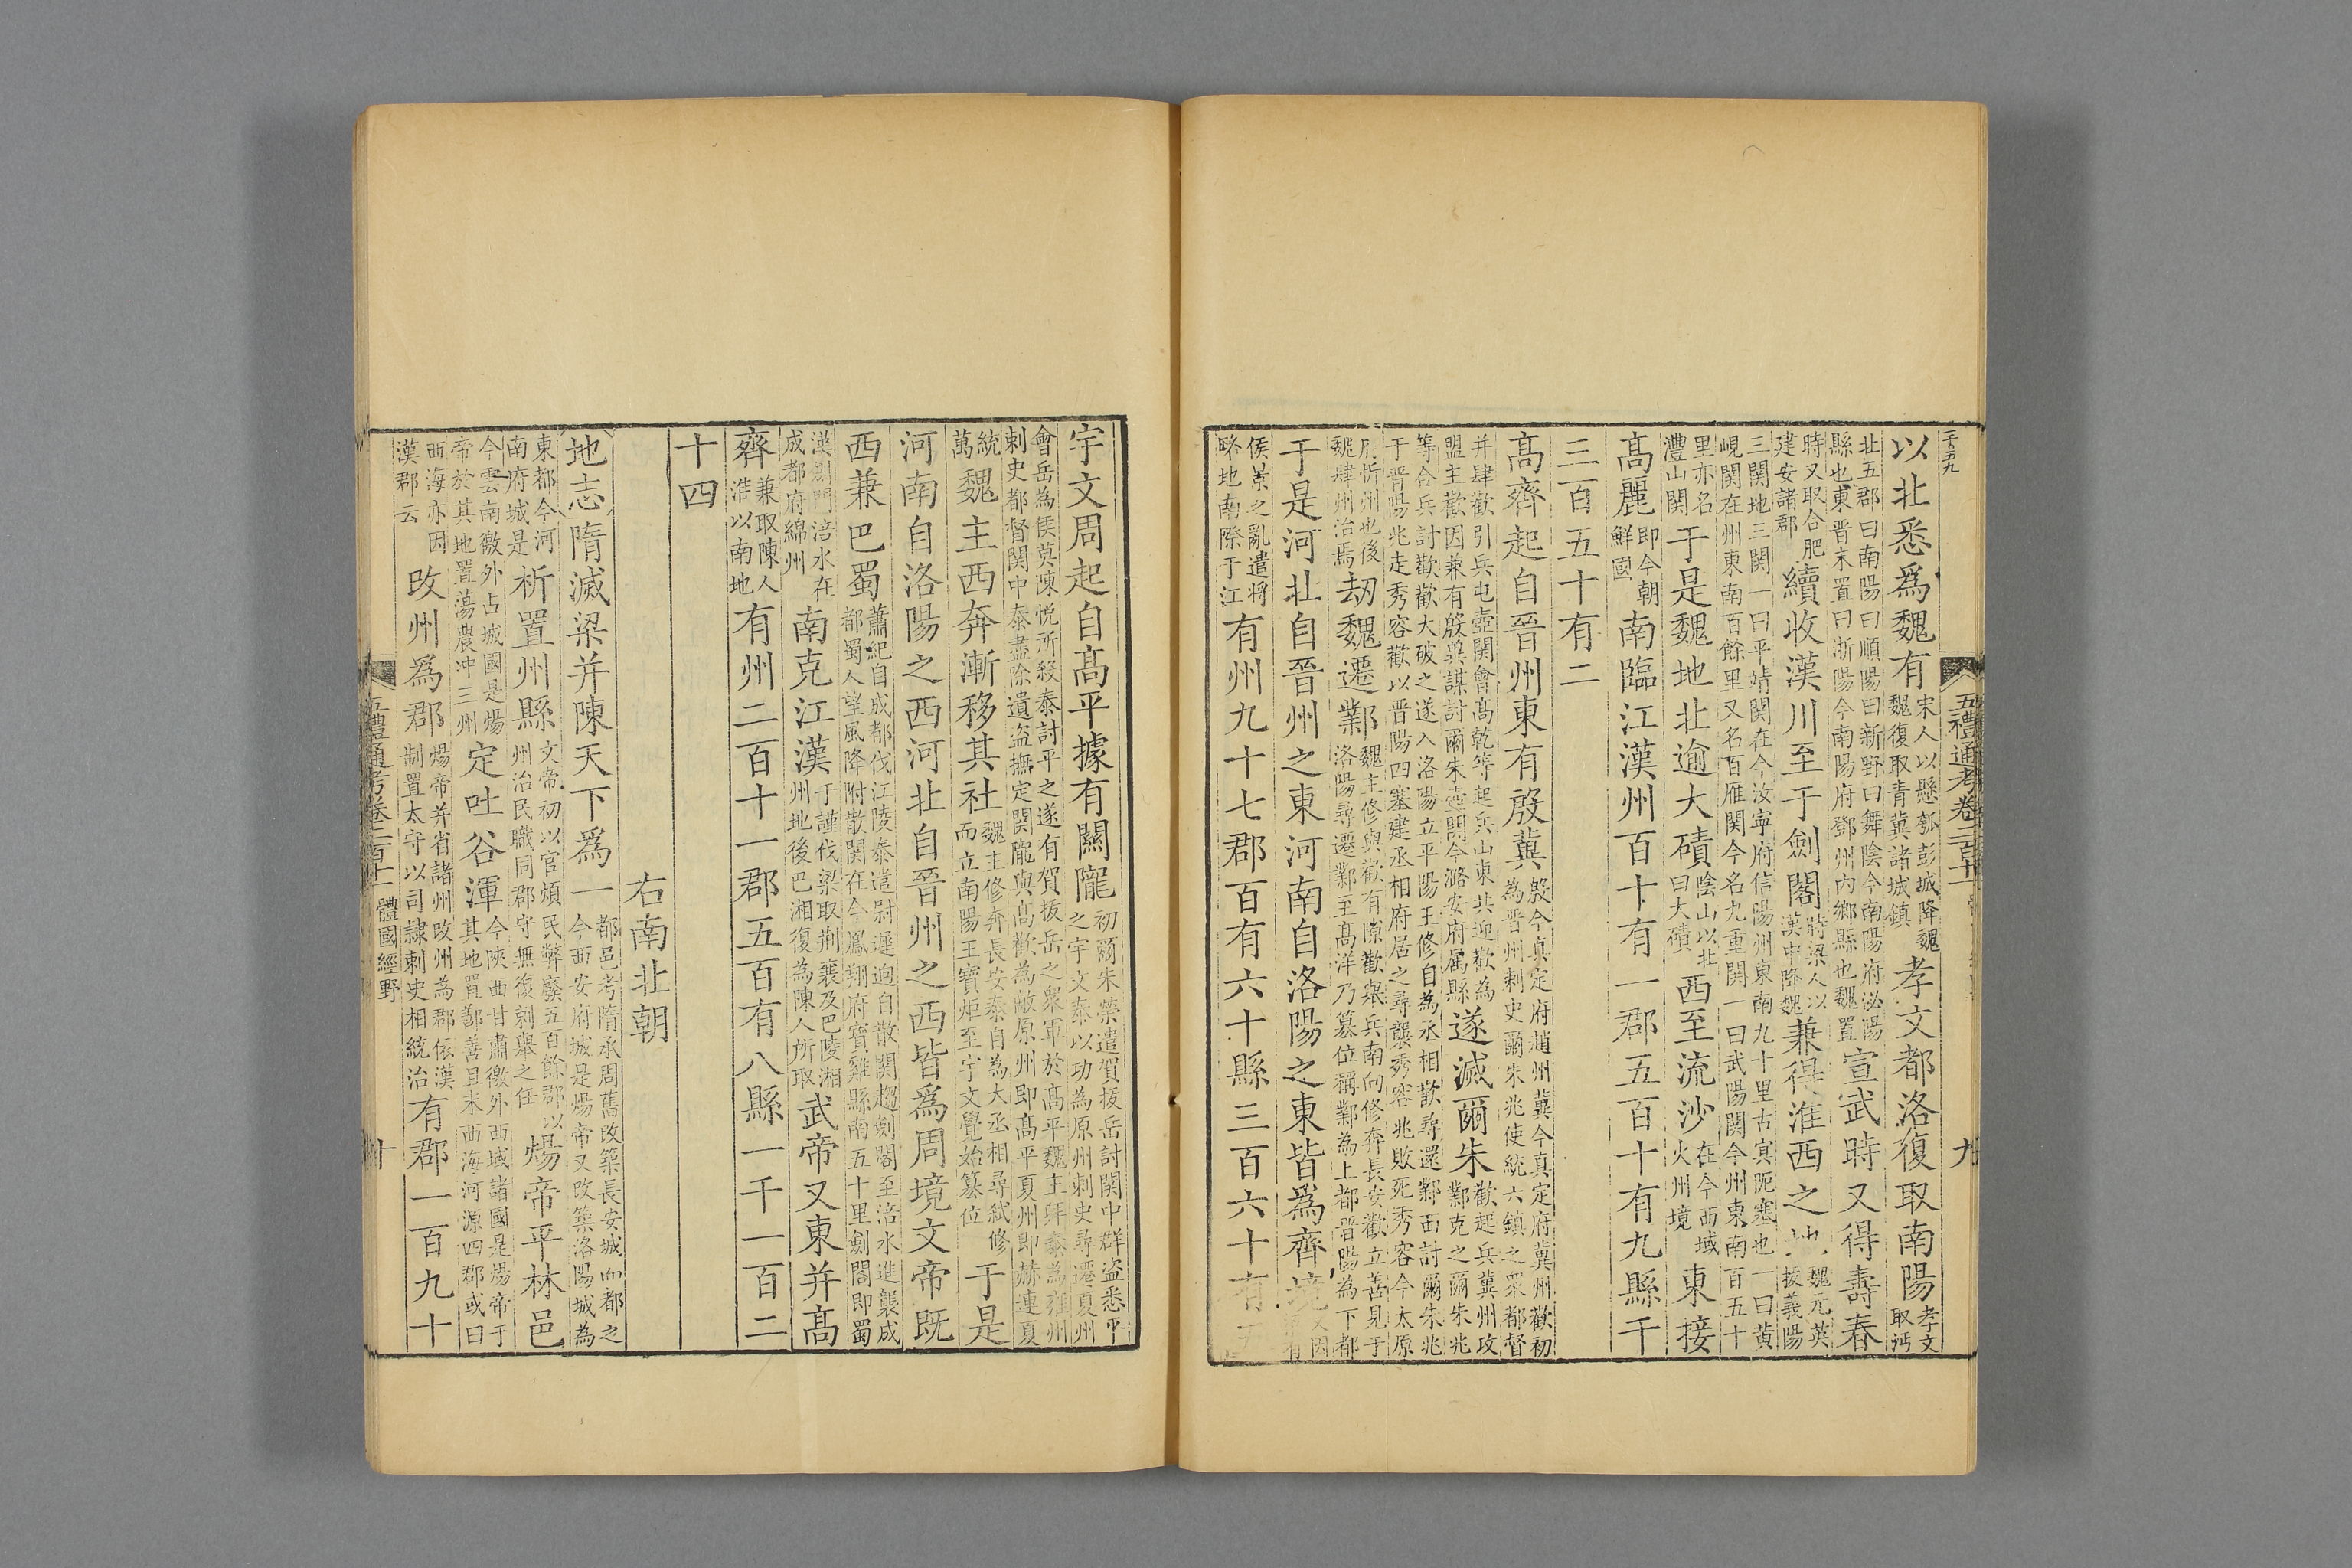 二百五九
五禮通考卷二百十一
九
以北悉爲魏有宋人以懸瓠彭城降魏魏復取青冀諸城鎮孝文都洛復取南陽孝文取沔
北五郡曰南陽曰順陽曰新野曰舞陰今南陽府泌陽縣也東晉末置曰淅陽今南陽府鄧州内鄉縣也魏置宣武時又得壽春
時又取合肥建安諸郡續收漢川至于劍閣時梁人以漢中降魏兼得淮西之地魏元英拔義陽
三関地三関一曰平靖関在今汝寧府信陽州東南九十里古㝠阨塞也一曰黄峴関在州東南百餘里又名百雁関今名九重関一曰武陽関今州東南百五十
里亦名灃山関于是魏地北逾大磧陰山以北曰大磧西至流沙在今西域火州境東接
髙麗即今朝鮮國南臨江漢州百十有一郡五百十有九縣千
三百五十有二
髙齊起自晉州東有殷冀殷今真定府趙州冀今真定府冀州歡初為晉州刺史爾朱兆使統六鎮之衆都督
并肆歡引兵屯壺関會髙乾等起兵山東共迎歡為盟主歡因兼有殷冀謀討爾朱壺関今潞安府属縣遂滅爾朱歡起兵冀州攻鄴克之爾朱兆
等合兵討歡歡大破之遂入洛陽立平陽王修自為丞相歡尋還鄴西討爾朱兆于晉陽兆走秀容歡以晉陽四塞建丞相府居之尋襲秀容兆敗死秀容今太原
府忻州也後魏肆州治焉刼魏遷鄴魏主修與歡有隙歡舉兵南向修奔長安歡立善見于洛陽尋遷鄴至髙洋乃篡位稱鄴為上都晉陽為下都
于是河北自晉州之東河南自洛陽之東皆爲齊境又因有
侯景之亂遣将略地南際于江有州九十七郡百有六十縣三百六十有五
宇文周起自髙平據有關隴初爾朱榮遣賀拔岳討関中群盗悉平之宇文泰以功為原州刺史尋遷夏州
會岳為侯莫陳悦所殺泰討平之遂有賀拔岳之衆軍於髙平魏主拜泰為雍州刺史都督関中泰盡除遺盗撫定関隴與髙歡為敵原州即髙平夏州即赫連夏
統萬魏主西奔漸移其社魏主修奔長安泰自為大丞相尋弑修而立南陽王寶炬至宇文覺始篡位于是
河南自洛陽之西河北自晉州之西皆爲周境文帝既
西兼巴蜀蕭紀自成都伐江陵泰遣尉遲迥自散関趨劍閣至涪水進襲成都蜀人望風降附散関在今鳳翔府寶雞縣南五十里劍閣即蜀
漢劍門涪水在成都府綿州南克江漢于謹伐梁取荆襄及巴陵湘州地後巴湘復為陳人所取武帝又東并髙
齊兼取陳人淮以南地有州二百十一郡五百有八縣一千一百二
十四
右南北朝
地志隋滅梁并陳天下爲一都邑考隋承周舊改築長安城向都之今西安府城是煬帝又改築洛陽城為
東都今河南府城是析置州縣文帝初以官煩民弊廢五百餘郡以州治民職同郡守無復刺舉之任煬帝平林邑
今雲南徼外占城國是煬帝於其地置蕩農冲三州定吐谷渾今陜西甘肅徼外西域諸國是煬帝于其地置鄯善且末西海河源四郡或曰
西海亦因漢郡云改州爲郡煬帝并省諸州改州為郡依漢制置太守以司隸刺史相統治有郡一百九十
五禮通考卷二百十一 體國經野
十